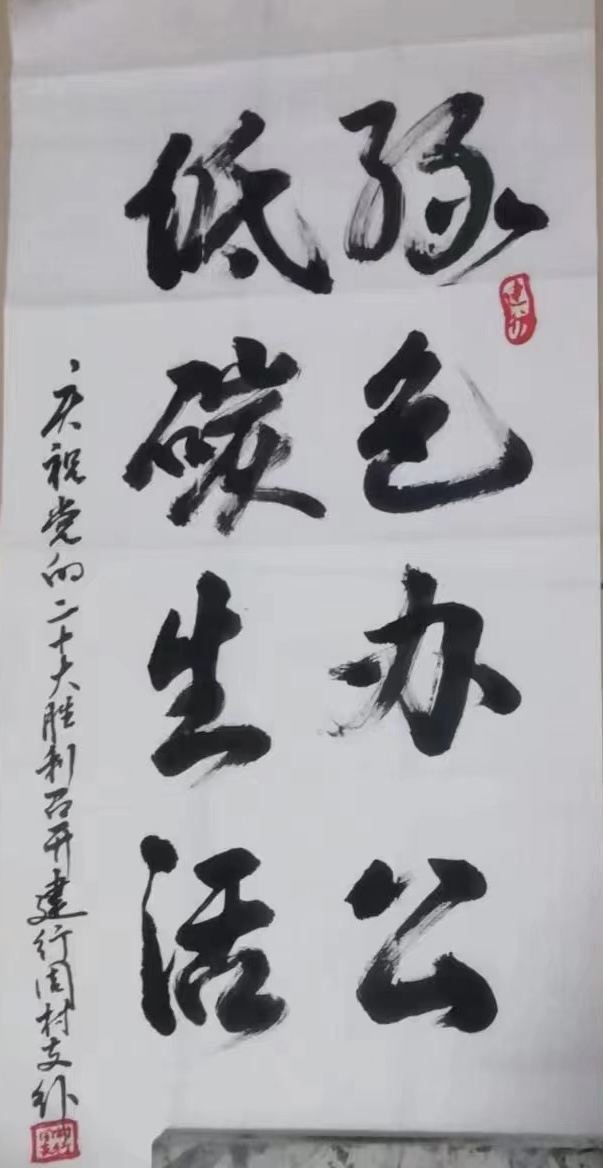 绿色办公
低碳生活
庆祝党的二十大胜利召开建行周村支行